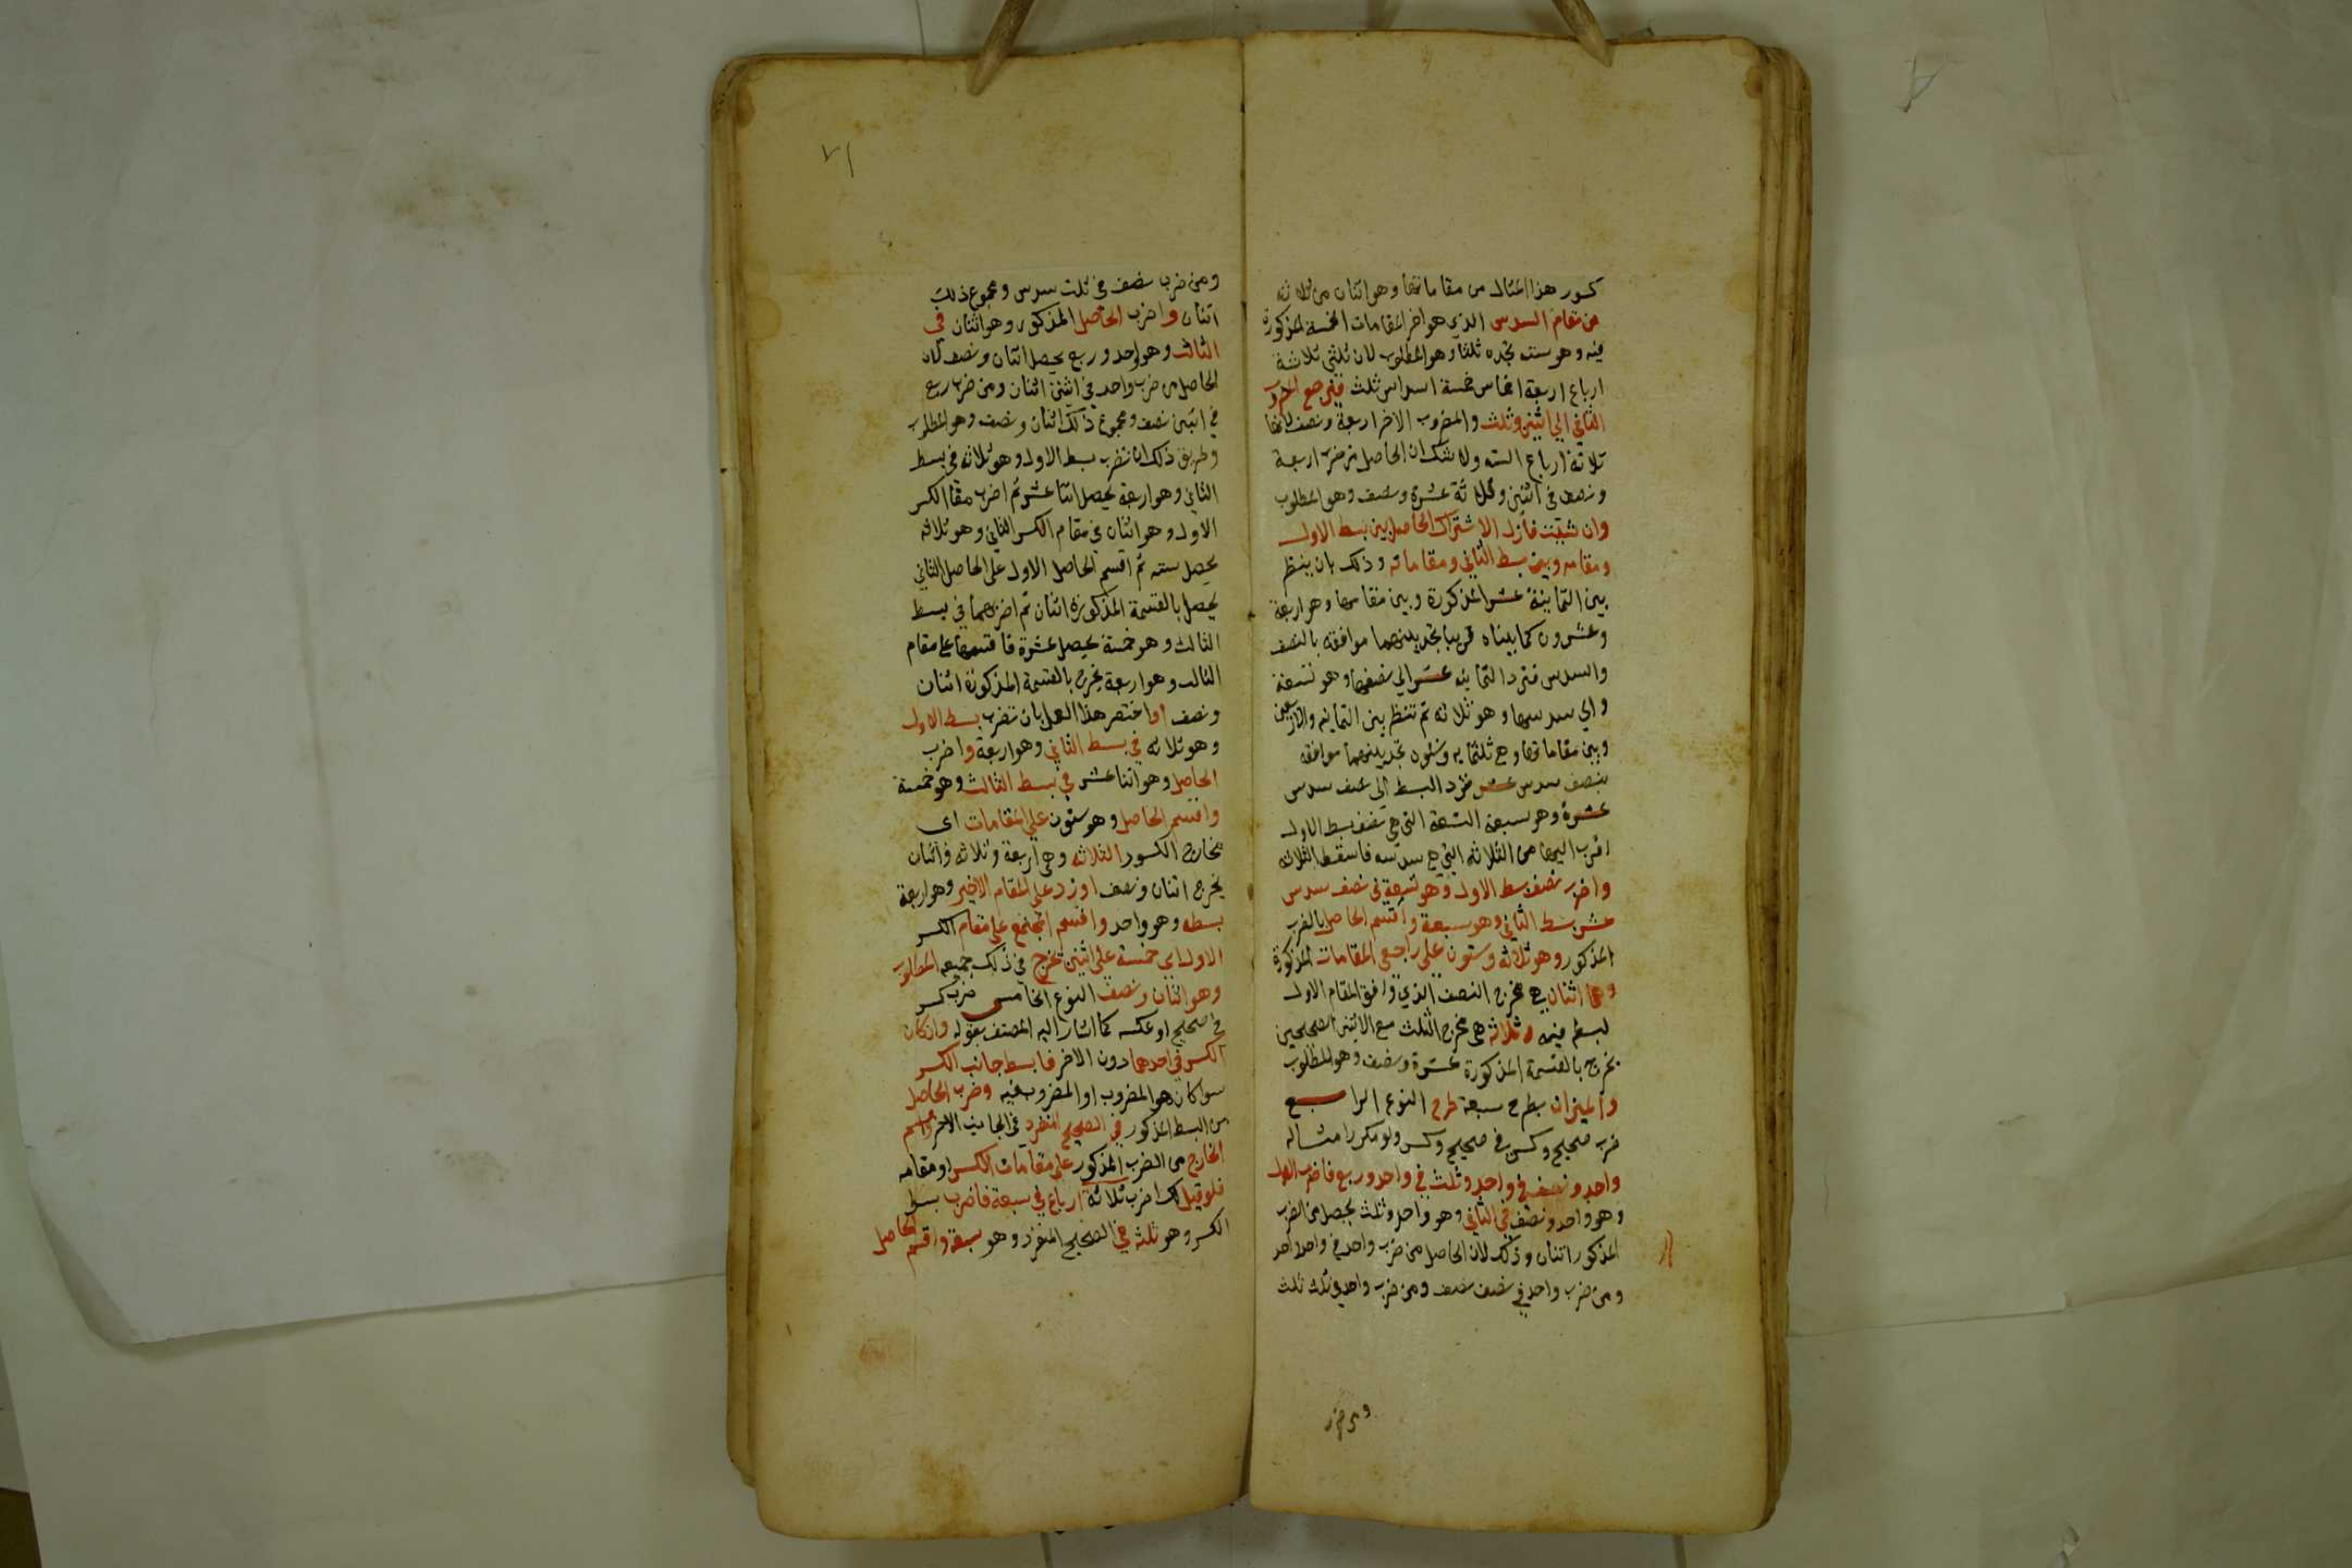 كسور هذا المثال من مقاماتها وهو اثنان من ثلاثة
من مقام السدس الذي هو اخر المقامات الخمسة المذكورة
فيه وهو ستة تجده ثلثا وهو المطلوب لان ثلثي ثلاثة
ارباع اربعة اخماس خمسة اسداس ثلث فيرجع المضروب
الثاني الي اثنين وثلث والمضروب الاخر اربعة ونصف لانها
ثلاثة ارباع الستة ولا شك ان الحاصل من ضرب اربعة
ونصف في اثنين وثلث عشرة ونصف وهو المطلوب
وان شئت فازل الاشتراك الحاصل بين بسط الاول
ومقامه وبين بسط الثاني ومقاماته وذلك بان ينظر
بين الثمانية عشر المذكورة وبين مقامها وهو اربعة
وعشرون كما بيناه قريبا تجد بينهما موافقة بالنصف
والسدس فترد الثمانية عشر الي نصفها وهو تسعة
والي سدسها وهو ثلاثة ثم تنظر بين الثمانية والاربعين
وبين مقاماتها وهي ثلثماية وستون تجد بينهما موافقة
بنصف سدس عشر فترد البسط الى نصف سدس
عشره وهو سبعة التسعة التي هي نصف بسط الاول
اقرب اليها من الثلاثة التي هي سدسه فاسقط الثلاثة
واضرب نصف بسط الاول وهو تسعة في نصف سدس
عشر بسط الثاني وهو سبعة واقسم الحاصل بالضرب
المذكور وهو ثلاثة وستون على راجعي المقامات المذكورة
وهما اثنان هي مخرج النصف الذي وافق المقام الاول
لبسطه فيه وثلاثة هي مخرج الثلث مع الاثنين الصحيحين
يخرج بالقسمة المذكورة عشرة ونصف وهو المطلوب
والميزان بطرح سبعة طرح النوع الرابع
ضرب صحيح وكسر في صحيح وكسر ولو مكررا مثاله
واحد ونصف في واحد وثلث في واحد وربع فاضرب الاول
وهو واحد ونصف في الثاني وهو واحد وثلث يحصل من الضرب
المذكور اثنان وذلك لان الحاصل من ضرب واحد في واحد واحد
ومن ضرب واحد في نصف نصف ومن ضرب واحد في ثلث ثلث
ومن ضرب
٧١
ومن ضرب نصف في ثلث سدس ومجموع ذلك
اثنان واضرب الحاصل المذكور وهو اثنان في
الثالث وهو واحد وربع يحصل اثنان ونصف لان
الحاصل من ضرب واحد في اثنين اثنان ومن ضرب ربع
في اثنين نصف ومجموع ذلك اثنان ونصف وهو المطلوب
وطريق ذلك ان تضرب بسط الاول وهو ثلاثة في بسط
الثاني وهو اربعة يحصل اثنا عشر ثم اضرب مقام الكسر
الاول وهو اثنان في مقام الكسر الثاني وهو ثلاثة
يحصل ستة ثم اقسم الحاصل الاول على الحاصل الثاني
يحصل بالقسمة المذكورة اثنان ثم اضربهما في بسط
الثالث وهو خمسة يحصل عشرة فاقسمها على مقام
الثالث وهو اربعة يخرج بالقسمة المذكورة اثنان
ونصف او اختصر هذا العمل بان تضرب بسط الاول
وهو ثلاثة في بسط الثاني وهو اربعة واضرب
الحاصل وهو اثنا عشر في بسط الثالث وهو خمسة
واقسم الحاصل وهو ستون على المقامات اى
مخارج الكسور الثلاثة وهي اربعة وثلاثة واثنان
يخرج اثنان ونصف او زد على المقام الاخير وهو اربعة
بسطه وهو واحد واقسم المجتمع على مقام الكسر
الاول اي خمسة على اثنين يخرج في ذلك جميعه المطلوب
وهو اثنان ونصف النوع الخامس ضرب كسر
في صحيح او عكسه كما اشار اليه المصنف بقوله وان كان
الكسر في احدهما دون الاخر فابسط جانب الكسر
سوا كان هو المضروب او المضروب فيه وضرب الحاصل
من البسط المذكور في الصحيح المنفرد في الجانب الاخر واقسم
الخارج من الضرب المذكور على مقامات الكسر او مقامه
فلو قيل لك اضرب ثلاثة ارباع في سبعة فاضرب بسط
الكسر وهو ثلثه في الصحيح المنفرد وهو سبعة واقسم الحاصل